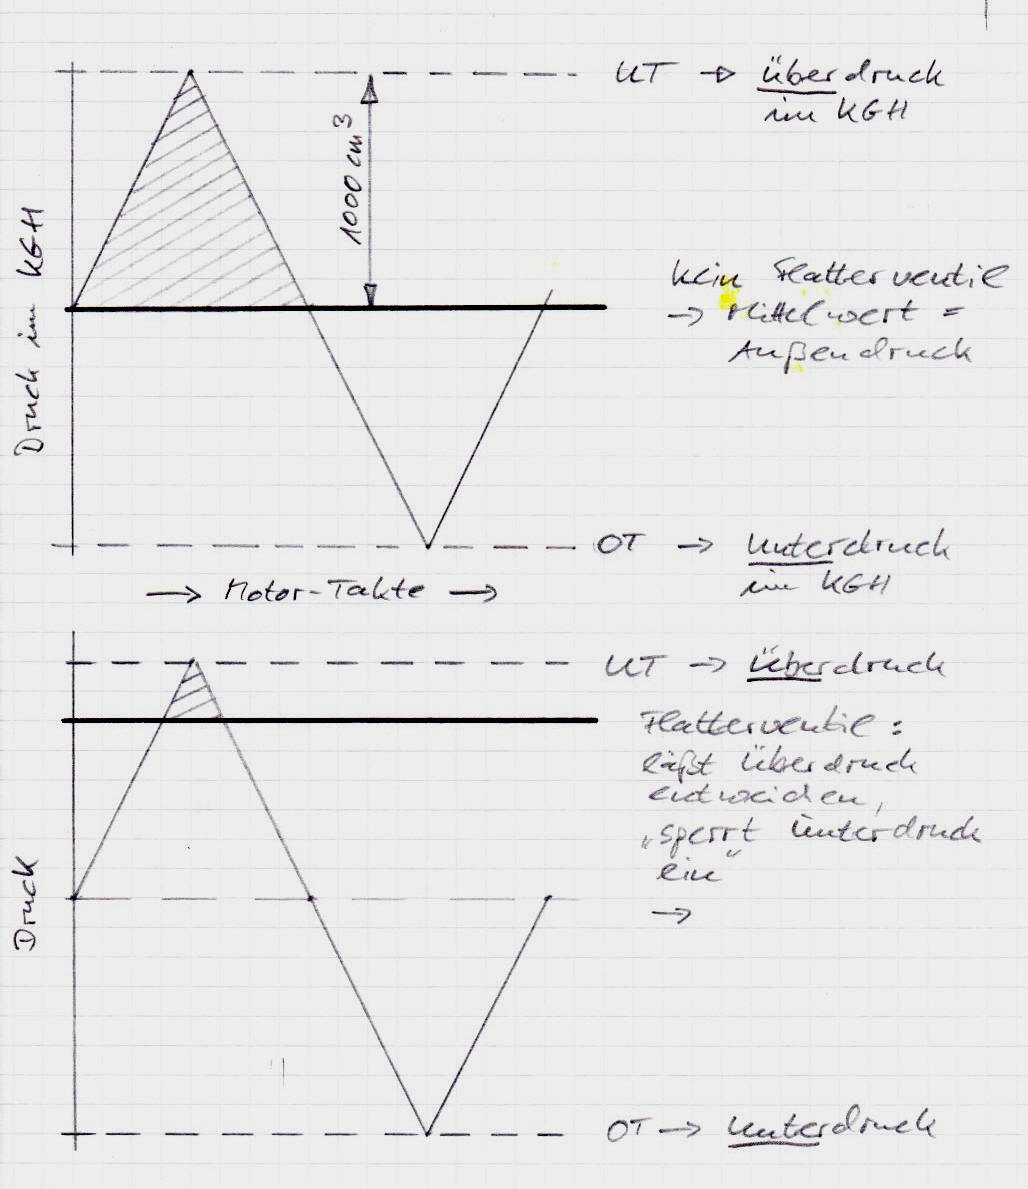 UT → Überdruck
im KGH
1000 cm³
Druck im KGH
kein Flatterventil
→ Mittelwert =
Außendruck
OT → Unterdruck
im KGH
→ Motor-Takte →
UT → Überdruck
Flatterventil:
läßt Überdruck
entweichen,
„sperrt Unterdruck
ein"
→
Druck
OT → Unterdruck